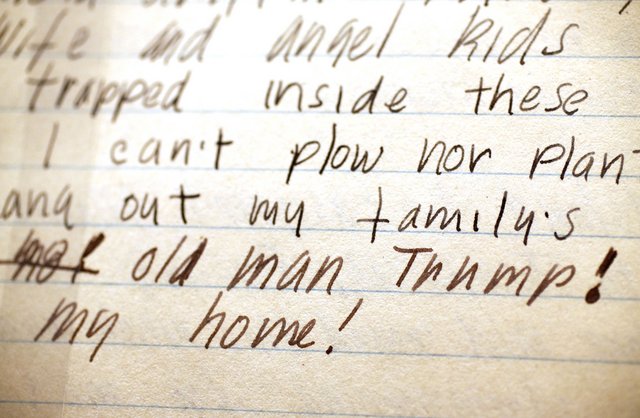 wife and angel kids
trapped inside these
I can't plow nor plan
and out my family's
not old man Trump!
my home!